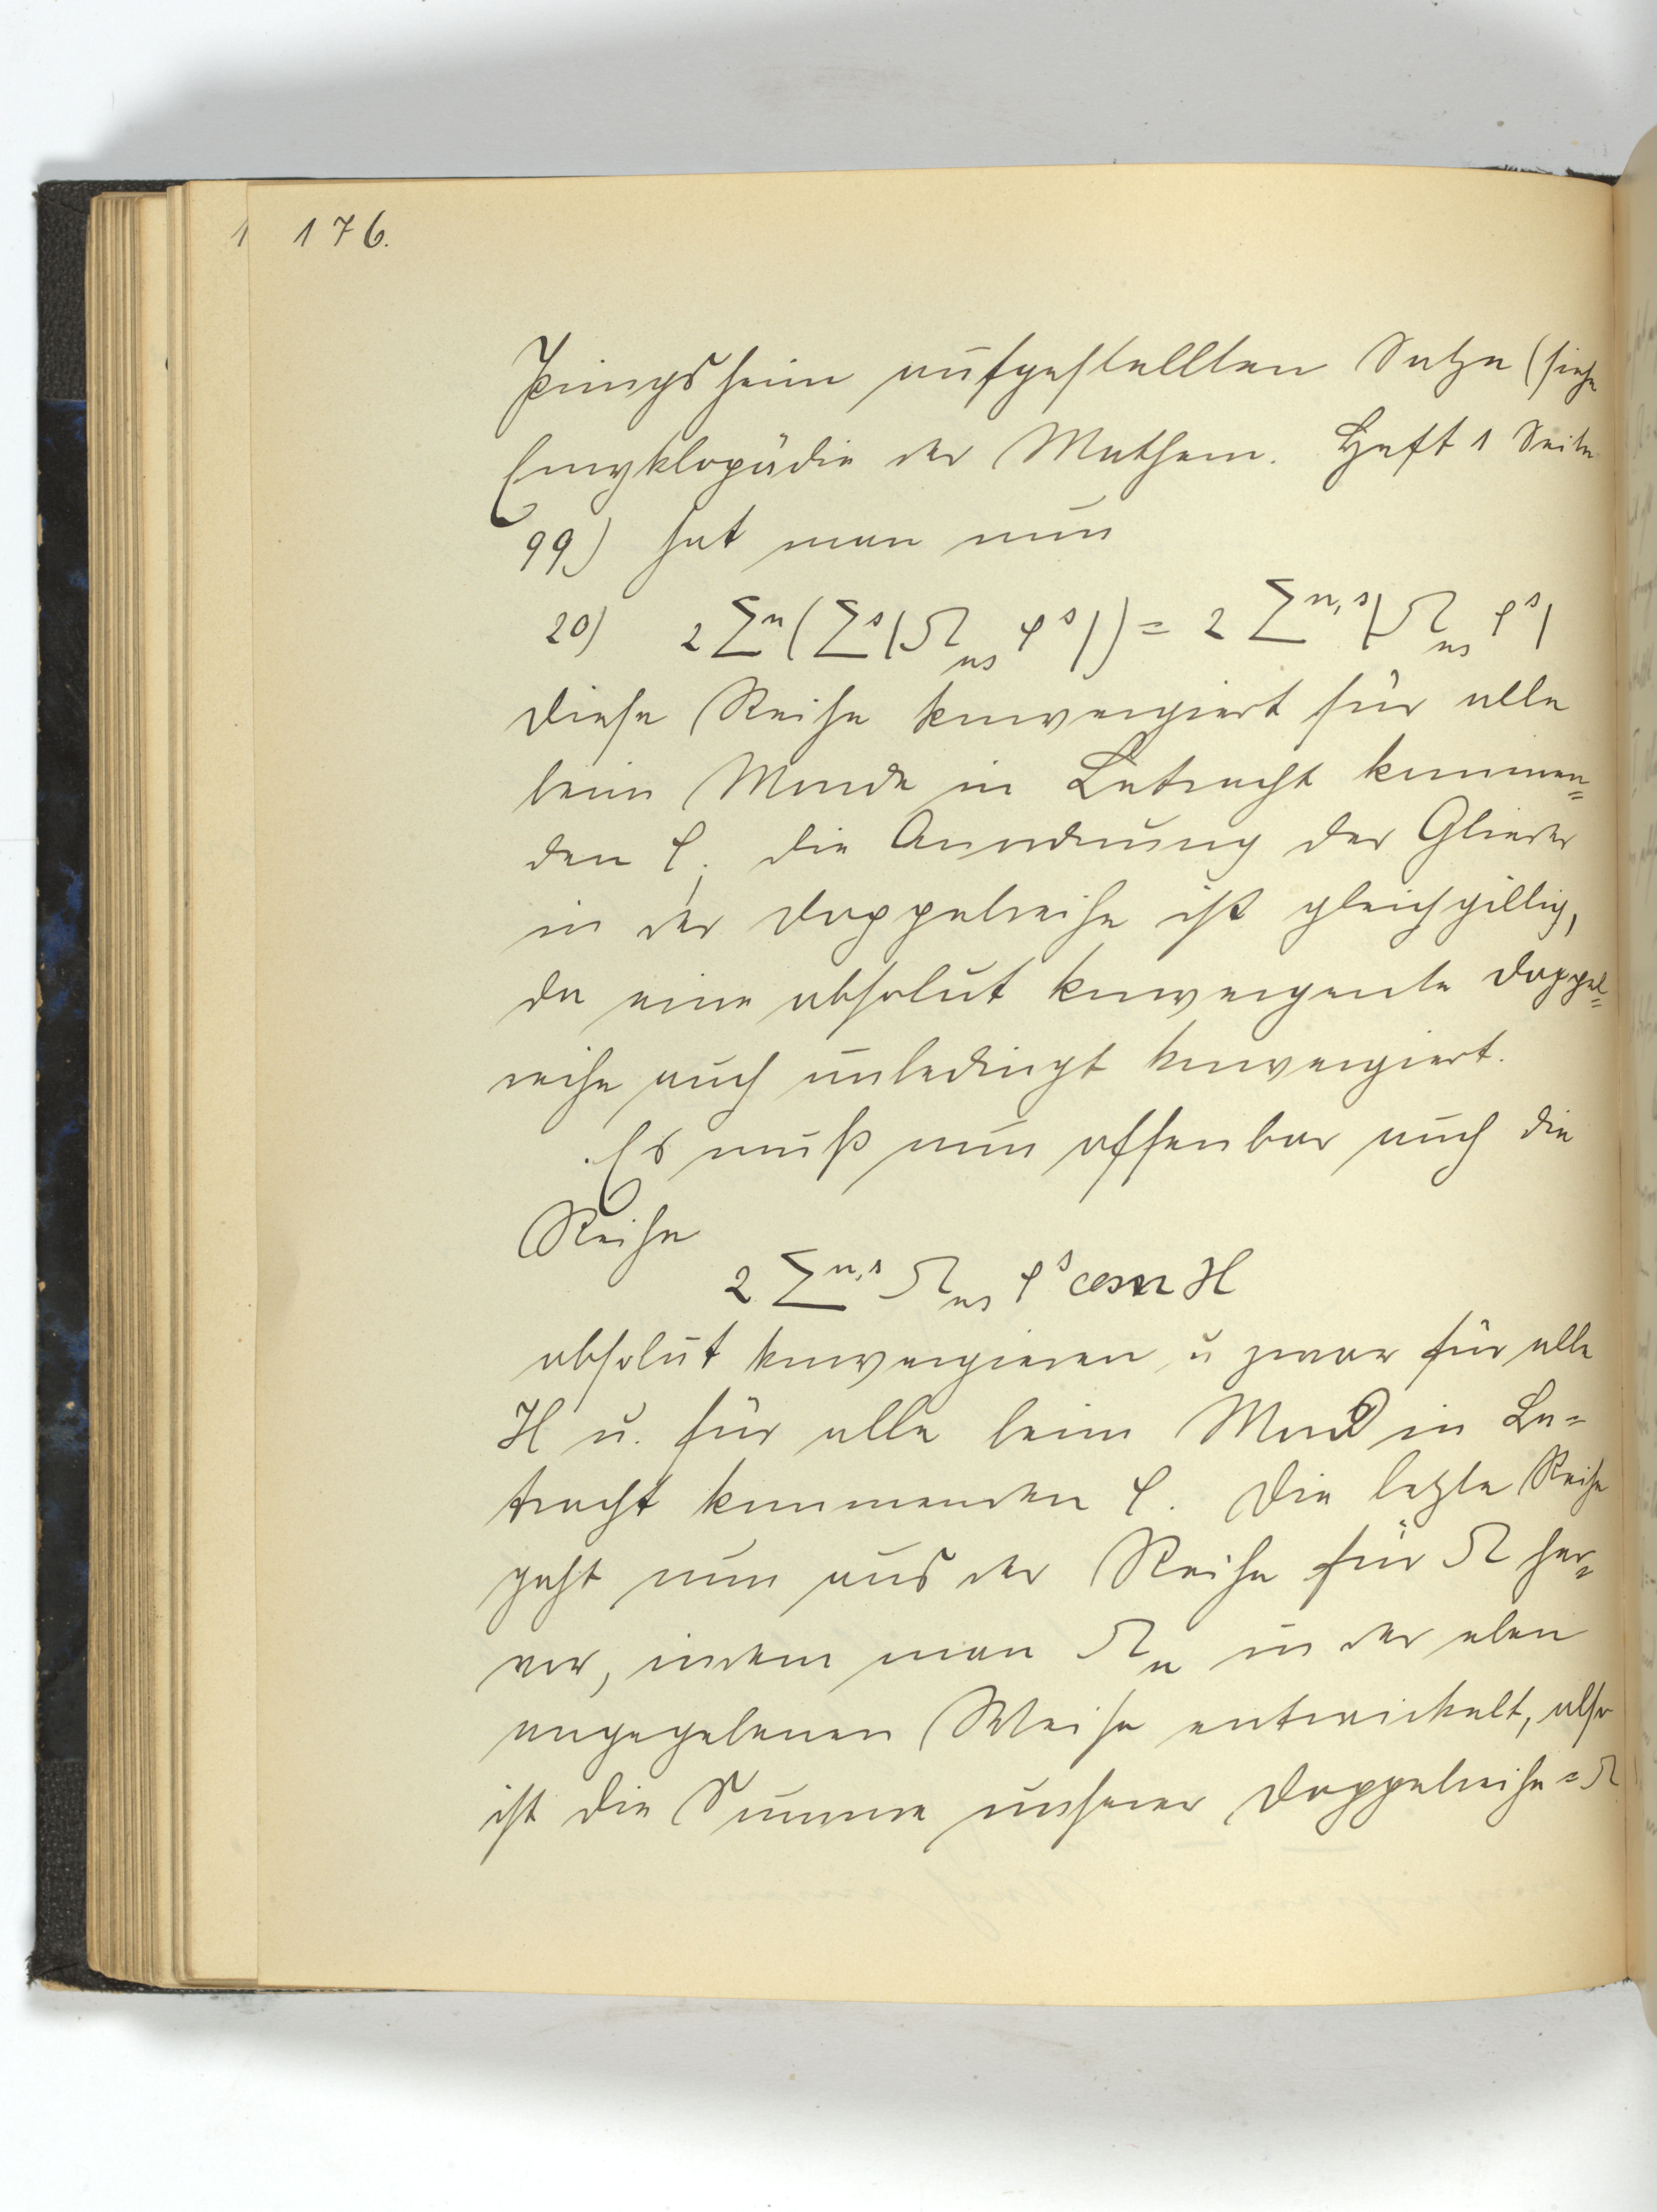 176.
Pringsheim aufgestellten Satze (siehe
Encyklopädie der Mathem. Heft 1 Seite
99) hat man nun
20) 2 Σⁿ(Σˢ|Ω_ns φˢ|) = 2 Σⁿ,ˢ|Ω_ns φˢ|
diese Reihe konvergiert für alle
beim Monde in Betracht kommen=
den φ; die Anordnung der Glieder
in der Doppelreihe ist gleichgiltig,
da eine absolut konvergente Doppel=
reihe auch unbedingt konvergiert.
Es muß nun offenbar auch die
Reihe
2 Σⁿ,ˢ Ω_ns φˢ cos n H
absolut konvergieren u zwar für alle
H u. für alle beim Mond in Be=
tracht kommenden φ. Die letzte Reihe
geht nun aus der Reihe für Ω her=
vor, indem man Ω_n in der eben
angegebenen Weise entwickelt, also
ist die Summe unserer Doppelreihe = Ω